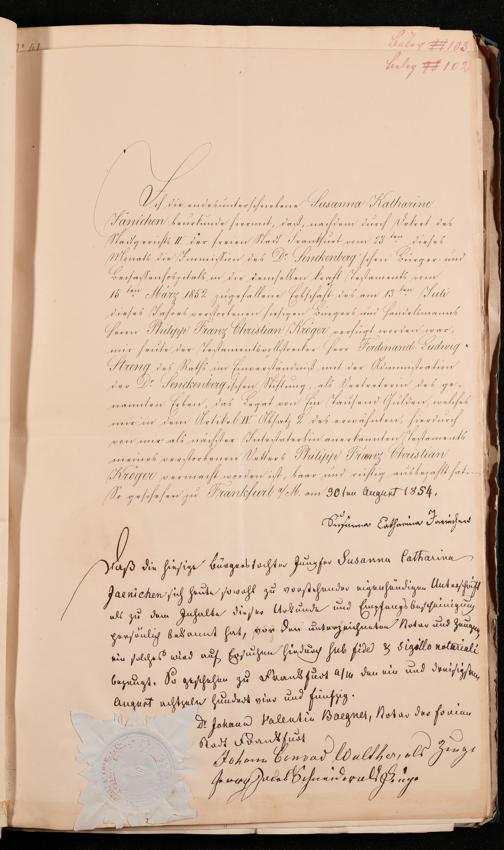 Beleg # 103
Beleg # 102
Ich die endesunterschriebene Susanna Katharine
Jänichen beurkunde hiermit, daß, nachdem durch Dekret des
Stadtgerichts II. der freien Stadt Frankfurt vom 23ten dieses
Monats die Immission des Dr. Senckenberg'schen Bürger und
Beisassenhospitals in die demselben kraft Testaments vom
15ten März 1852 zugefallene Erbschaft des am 13ten Juli
dieses Jahres verstorbenen hiesigen Bürgers und Handelsmanns
Herrn Philipp Franz Christian Kröger verfügt worden war,
mir heute der Testamentsvollstrecker Herr Ferdinand Ludwig
Streng des Raths im Einverständniß mit der Administration
der Dr. Senckenbergischen Stiftung, als Vertreterin des ge-
nannten Erben, das Legat von Ein Tausend Gulden, welches
mir in dem Artikel IV Absatz 2 des erwähnten, hierdurch
von mir als nächster Intestaterbin anerkannten Testaments
meines verstorbenen Vetters Philipp Franz Christian
Kröger vermacht worden ist, baar und richtig ausbezahlt hat.
So geschehen zu Frankfurt a/M. am 30ten August 1854.
Susanna Catharina Jaenichen
Daß die hiesige Bürgerstochter Jungfer Susanna Catharina
Jaenichen sich heute sowohl zu vorstehender eigenhändiger Unterschrift
als zu dem Inhalte dieser Urkunde und Empfangsbescheinigung
persönlich bekannt hat, vor den unterzeichneten Notar und Zeugen
ein solches wird auf Ersuchen hiedurch sub fide & sigillo notariali
bezeugt. So geschehen zu Frankfurt a/M den ein und dreisigsten
August achtzehn hundert vier und fünfzig.
Dr. Johann Valentin Baegner, Notar der freien
Stadt Frankfurt
Johann Conrad Walther, als Zeuge
Georg Jacob Schneider als Zeuge